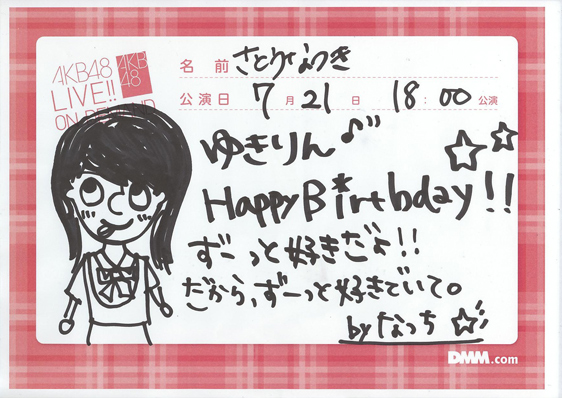 AKB48
LIVE!!
ON DEMAND
AKB
48
名 前 さとうなつき
公演日 7 月 21 日 18 : 00 公演
ゆきりん♪
Happy Birthday!!
ずーっと好きだよ!!
だから、ずーっと好きでいて。
by なっち☆
DMM.com